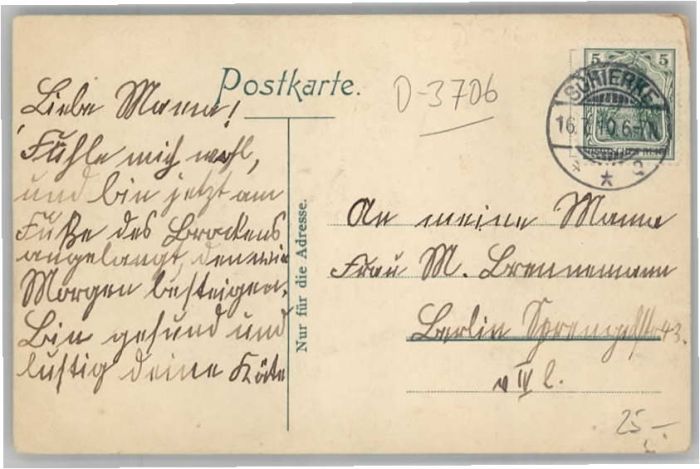 Postkarte.
D-3706
Liebe Mama!
Fühle mich wohl,
und bin jetzt am
Fuße des Brockens
angelangt, den wir
Morgen besteigen.
Bin gesund und
lustig deine Käte
Nur für die Adresse.
5 5
SCHIERKE
16.7.10.6-7N
An meine Mama
Frau M. Brennemann
Berlin Sprengelstr 43.
v IV l.
25-